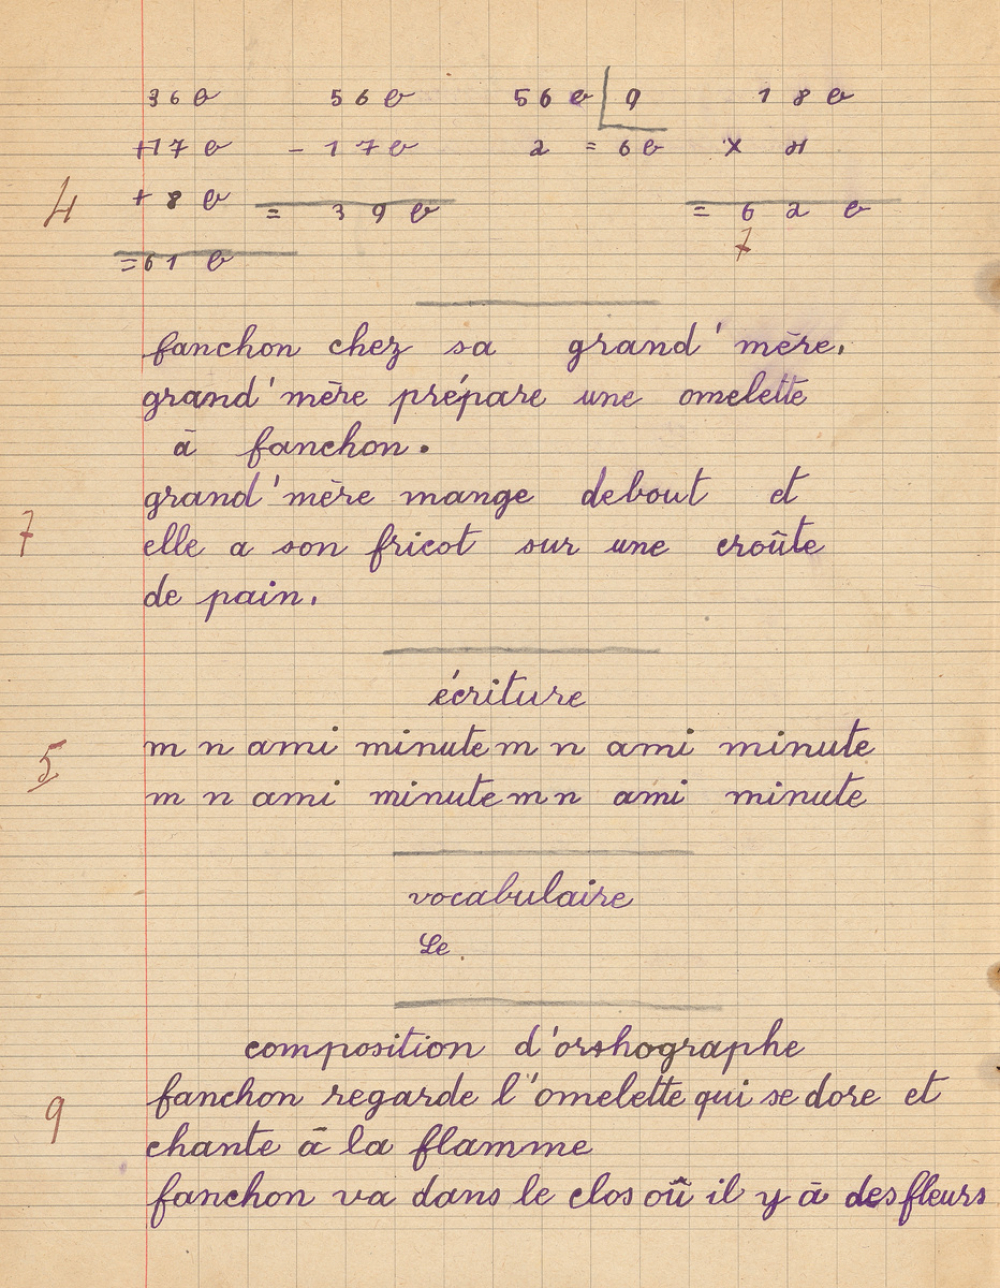 36 b 56 b 56 b 9 18 b
+17 b - 17 b 2 = 6 b x 4
4 + 8 b = 39 b = 6 2 b
7
=61 b
fanchon chez sa grand'mère.
grand'mère prépare une omelette
à fanchon.
grand'mère mange debout et
7 elle a son fricot sur une croûte
de pain.
écriture
5 m n ami minute m n ami minute
m n ami minute m n ami minute
vocabulaire
Le.
composition d'orshographe
9 fanchon regarde l'omelette qui se dore et
chante à la flamme
fanchon va dans le clos où il y à des fleurs